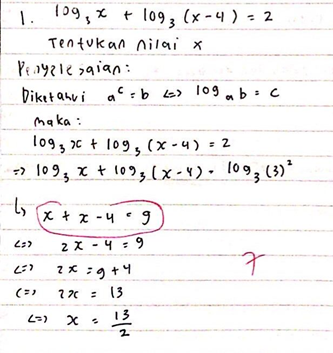 1. log₃ x + log₃ (x-4) = 2
Tentukan nilai x
Penyelesaian:
Diketahui aᶜ = b <=> log ₐ b = c
maka:
log₃ x + log₃ (x-4) = 2
=> log₃ x + log₃ (x-4) = log₃ (3)²
↳ x + x - 4 = 9
<=> 2x - 4 = 9
<=> 2x = 9 + 4
<=> 2x = 13
<=> x = 13/2
7